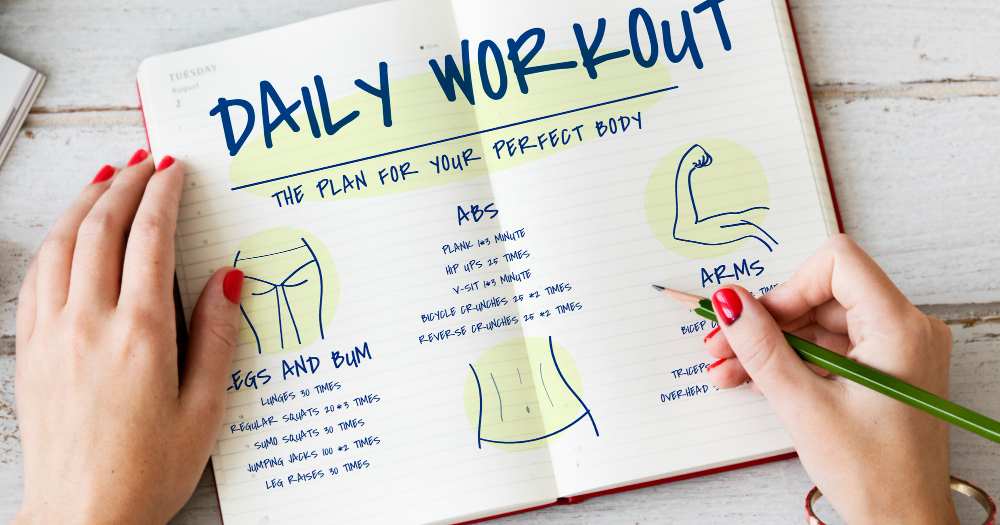 TUESDAY
August
2
DAILY WORKOUT
THE PLAN FOR YOUR PERFECT BODY
ABS
PLANK 1*3 MINUTE
HIP UPS 25 TIMES
V-SIT 1*3 MINUTE
BICYCLE CRUNCHES 25 *2 TIMES
REVERSE CRUNCHES 25 *2 TIMES
ARMS
BICEP
TRICEPS
OVERHEAD
LEGS AND BUM
LUNGES 30 TIMES
REGULAR SQUATS 20*3 TIMES
SUMO SQUATS 30 TIMES
JUMPING JACKS 100 *2 TIMES
LEG RAISES 30 TIMES